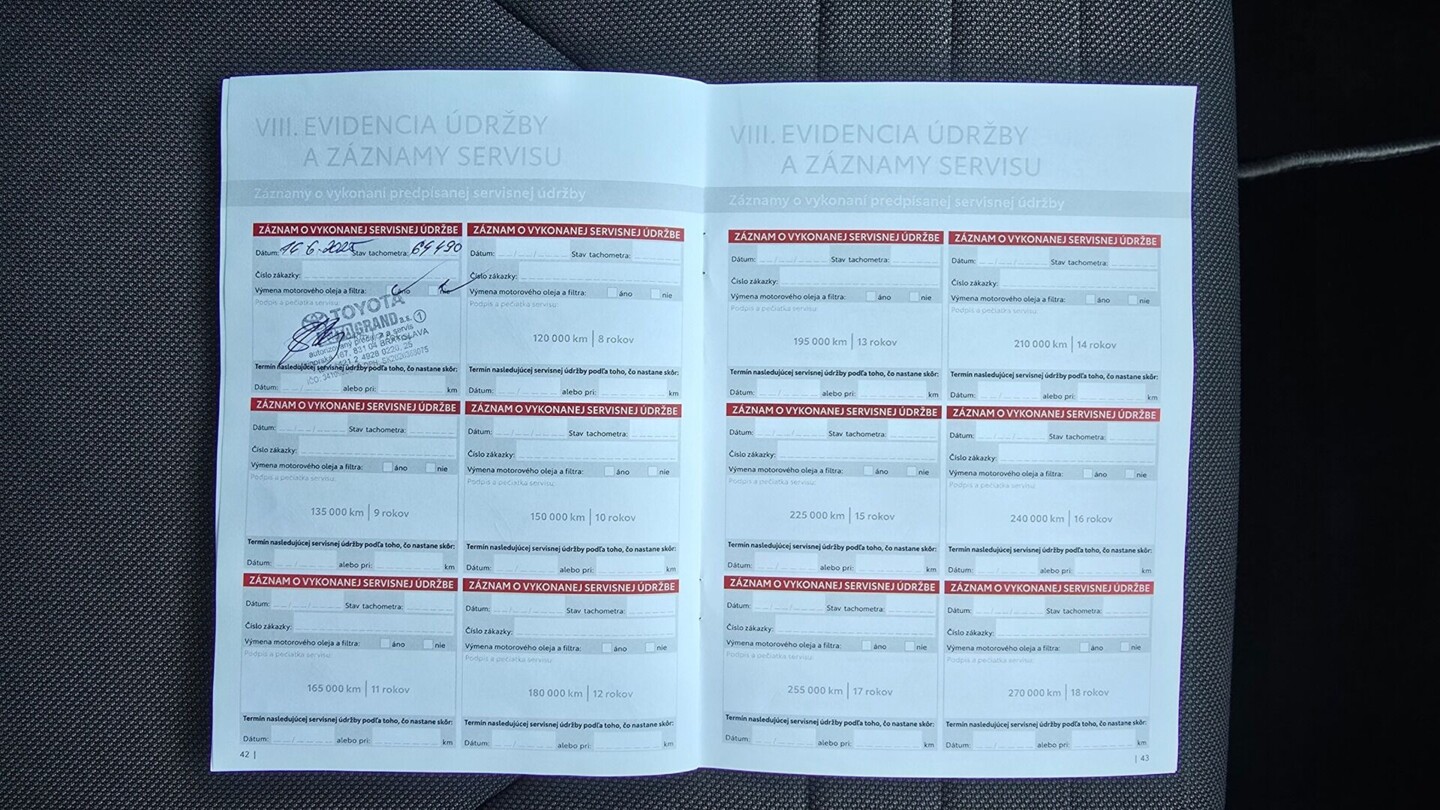 VIII. EVIDENCIA ÚDRŽBY
A ZÁZNAMY SERVISU
Záznamy o vykonaní predpísanej servisnej údržby
ZÁZNAM O VYKONANEJ SERVISNEJ ÚDRŽBE
Dátum: 16 6. 2025 Stav tachometra: 69490
Číslo zákazky:
Výmena motorového oleja a filtra: áno nie
Podpis a pečiatka servisu:
TOYOTA
GRAND a.s. 1
831 04 BRATISLAVA
Termín nasledujúcej servisnej údržby podľa toho, čo nastane skôr:
Dátum: alebo pri: km
ZÁZNAM O VYKONANEJ SERVISNEJ ÚDRŽBE
Dátum: Stav tachometra:
Číslo zákazky:
Výmena motorového oleja a filtra: áno nie
Podpis a pečiatka servisu:
120 000 km | 8 rokov
Termín nasledujúcej servisnej údržby podľa toho, čo nastane skôr:
Dátum: alebo pri: km
ZÁZNAM O VYKONANEJ SERVISNEJ ÚDRŽBE
Dátum: Stav tachometra:
Číslo zákazky:
Výmena motorového oleja a filtra: áno nie
Podpis a pečiatka servisu:
135 000 km | 9 rokov
Termín nasledujúcej servisnej údržby podľa toho, čo nastane skôr:
Dátum: alebo pri: km
ZÁZNAM O VYKONANEJ SERVISNEJ ÚDRŽBE
Dátum: Stav tachometra:
Číslo zákazky:
Výmena motorového oleja a filtra: áno nie
Podpis a pečiatka servisu:
150 000 km | 10 rokov
Termín nasledujúcej servisnej údržby podľa toho, čo nastane skôr:
Dátum: alebo pri: km
ZÁZNAM O VYKONANEJ SERVISNEJ ÚDRŽBE
Dátum: Stav tachometra:
Číslo zákazky:
Výmena motorového oleja a filtra: áno nie
Podpis a pečiatka servisu:
165 000 km | 11 rokov
Termín nasledujúcej servisnej údržby podľa toho, čo nastane skôr:
Dátum: alebo pri: km
ZÁZNAM O VYKONANEJ SERVISNEJ ÚDRŽBE
Dátum: Stav tachometra:
Číslo zákazky:
Výmena motorového oleja a filtra: áno nie
Podpis a pečiatka servisu:
180 000 km | 12 rokov
Termín nasledujúcej servisnej údržby podľa toho, čo nastane skôr:
Dátum: alebo pri: km
42 |
VIII. EVIDENCIA ÚDRŽBY
A ZÁZNAMY SERVISU
Záznamy o vykonaní predpísanej servisnej údržby
ZÁZNAM O VYKONANEJ SERVISNEJ ÚDRŽBE
Dátum: Stav tachometra:
Číslo zákazky:
Výmena motorového oleja a filtra: áno nie
Podpis a pečiatka servisu:
195 000 km | 13 rokov
Termín nasledujúcej servisnej údržby podľa toho, čo nastane skôr:
Dátum: alebo pri: km
ZÁZNAM O VYKONANEJ SERVISNEJ ÚDRŽBE
Dátum: Stav tachometra:
Číslo zákazky:
Výmena motorového oleja a filtra: áno nie
Podpis a pečiatka servisu:
210 000 km | 14 rokov
Termín nasledujúcej servisnej údržby podľa toho, čo nastane skôr:
Dátum: alebo pri: km
ZÁZNAM O VYKONANEJ SERVISNEJ ÚDRŽBE
Dátum: Stav tachometra:
Číslo zákazky:
Výmena motorového oleja a filtra: áno nie
Podpis a pečiatka servisu:
225 000 km | 15 rokov
Termín nasledujúcej servisnej údržby podľa toho, čo nastane skôr:
Dátum: alebo pri: km
ZÁZNAM O VYKONANEJ SERVISNEJ ÚDRŽBE
Dátum: Stav tachometra:
Číslo zákazky:
Výmena motorového oleja a filtra: áno nie
Podpis a pečiatka servisu:
240 000 km | 16 rokov
Termín nasledujúcej servisnej údržby podľa toho, čo nastane skôr:
Dátum: alebo pri: km
ZÁZNAM O VYKONANEJ SERVISNEJ ÚDRŽBE
Dátum: Stav tachometra:
Číslo zákazky:
Výmena motorového oleja a filtra: áno nie
Podpis a pečiatka servisu:
255 000 km | 17 rokov
Termín nasledujúcej servisnej údržby podľa toho, čo nastane skôr:
Dátum: alebo pri: km
ZÁZNAM O VYKONANEJ SERVISNEJ ÚDRŽBE
Dátum: Stav tachometra:
Číslo zákazky:
Výmena motorového oleja a filtra: áno nie
Podpis a pečiatka servisu:
270 000 km | 18 rokov
Termín nasledujúcej servisnej údržby podľa toho, čo nastane skôr:
Dátum: alebo pri: km
| 43